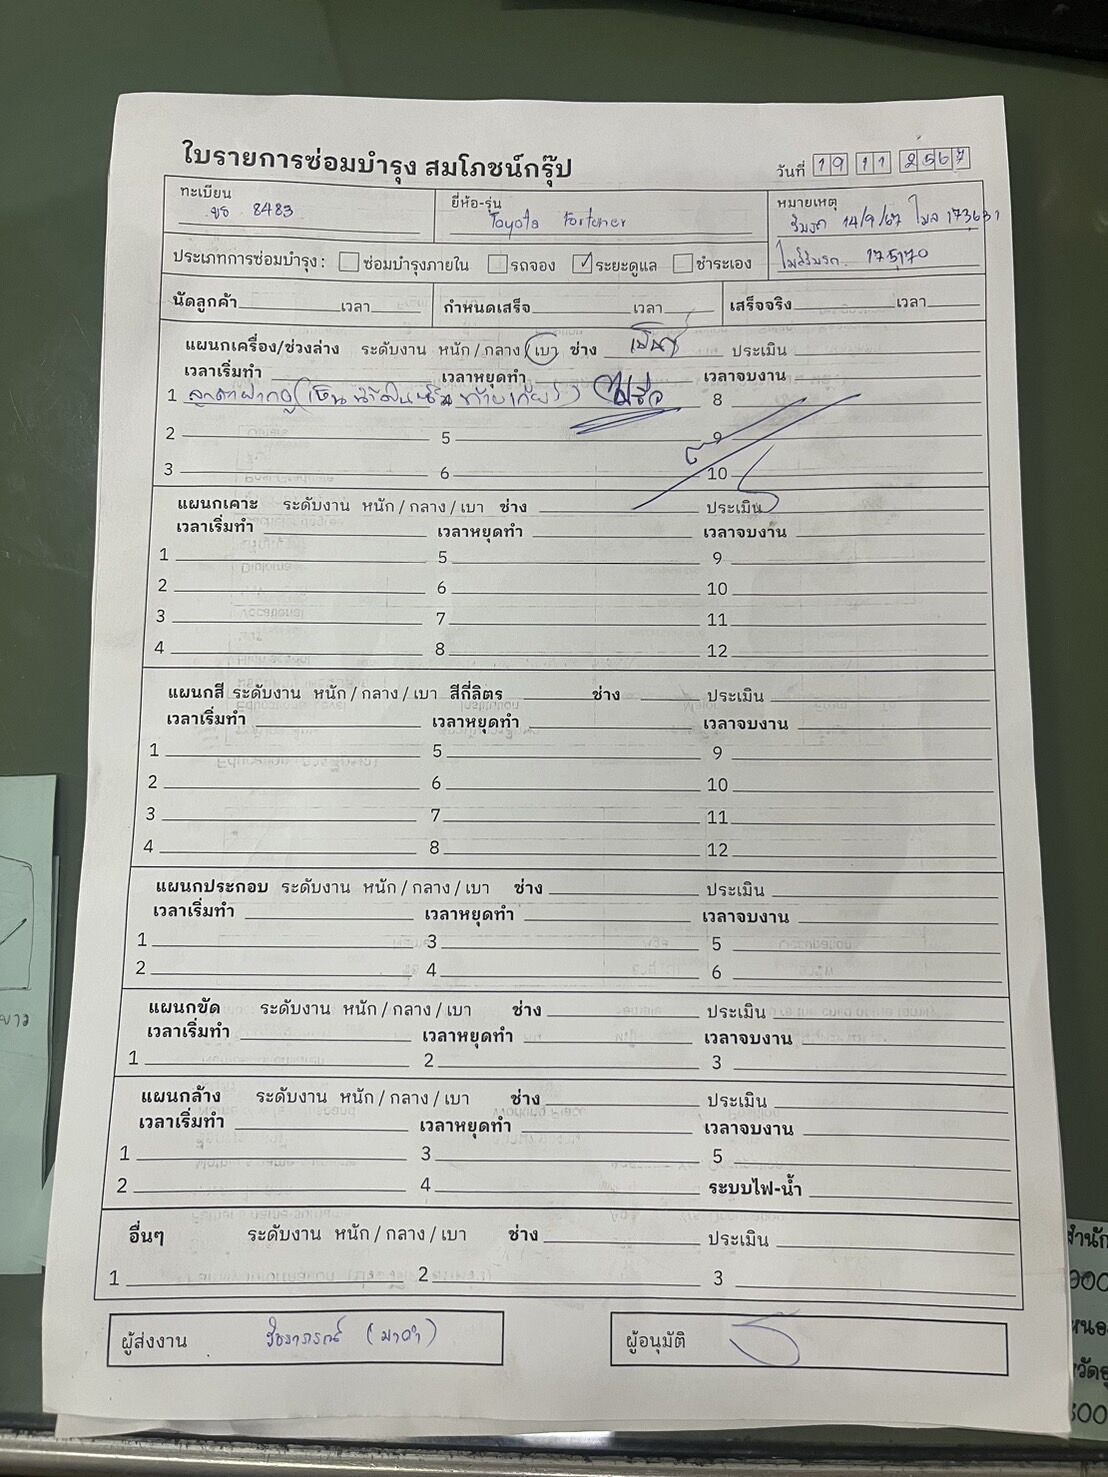 ใบรายการซ่อมบำรุง สมโภชน์กรุ๊ป
วันที่ 19 11 2567
ทะเบียน
8483
ยี่ห้อ-รุ่น
Toyota Fortuner
หมายเหตุ
รับรถ 14/9/67 ไมล์ 173631
175170
ประเภทการซ่อมบำรุง : ซ่อมบำรุงภายใน รถจอง ✓ ระยะดูแล ชำระเอง
นัดลูกค้า เวลา กำหนดเสร็จ เวลา เสร็จจริง เวลา
แผนกเครื่อง/ช่วงล่าง ระดับงาน หนัก / กลาง / เบา ช่าง ประเมิน
เวลาเริ่มทำ เวลาหยุดทำ เวลาจบงาน
1 8
2 5 9
3 6 10
แผนกเคาะ ระดับงาน หนัก / กลาง / เบา ช่าง ประเมิน
เวลาเริ่มทำ เวลาหยุดทำ เวลาจบงาน
1 5 9
2 6 10
3 7 11
4 8 12
แผนกสี ระดับงาน หนัก / กลาง / เบา สีกี่ลิตร ช่าง ประเมิน
เวลาเริ่มทำ เวลาหยุดทำ เวลาจบงาน
1 5 9
2 6 10
3 7 11
4 8 12
แผนกประกอบ ระดับงาน หนัก / กลาง / เบา ช่าง ประเมิน
เวลาเริ่มทำ เวลาหยุดทำ เวลาจบงาน
1 3 5
2 4 6
แผนกขัด ระดับงาน หนัก / กลาง / เบา ช่าง ประเมิน
เวลาเริ่มทำ เวลาหยุดทำ เวลาจบงาน
1 2 3
แผนกล้าง ระดับงาน หนัก / กลาง / เบา ช่าง ประเมิน
เวลาเริ่มทำ เวลาหยุดทำ เวลาจบงาน
1 3 5
2 4 ระบบไฟ-น้ำ
อื่นๆ ระดับงาน หนัก / กลาง / เบา ช่าง ประเมิน
1 2 3
ผู้ส่งงาน
ผู้อนุมัติ